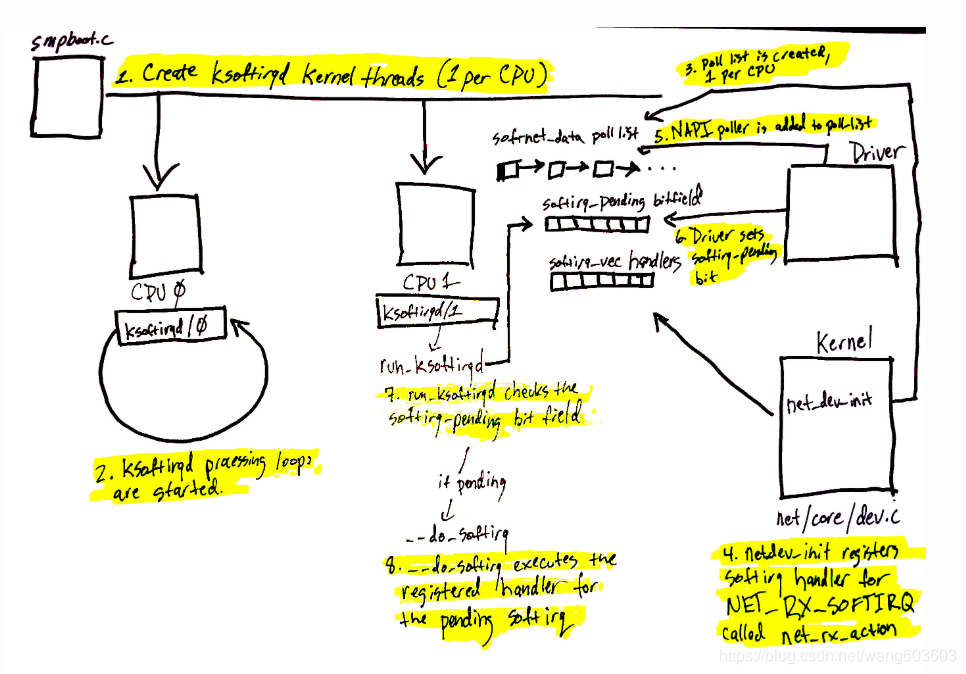 smpboot.c
1. Create ksoftirqd kernel threads (1 per CPU)
3. Poll list is created,
1 per CPU
softnet_data poll list
5. NAPI poller is added to poll_list
Driver
softirq-pending bitfield
6. Driver sets
softirq-pending
bit
softirq-vec handlers
CPU 0
ksoftirqd/0
CPU 1
ksoftirqd/1
run_ksoftirqd
7. run_ksoftirqd checks the
softirq-pending bit field
2. ksoftirqd processing loops
are started.
if pending
__do_softirq
8. __do_softirq executes the
registered handler for
the pending softirq
Kernel
net_dev_init
net/core/dev.c
4. netdev_init registers
softirq handler for
NET_RX_SOFTIRQ
called net_rx_action
https://blog.csdn.net/wang603603